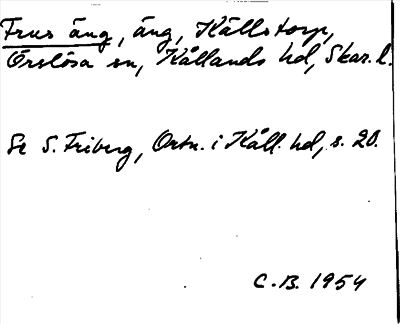 Frus äng, äng, Källstorp,
Örslösa sn, Kållands hd, Skar. l.
Se S. Friberg, Ortn. i Kåll. hd, s. 20.
C.B. 1954